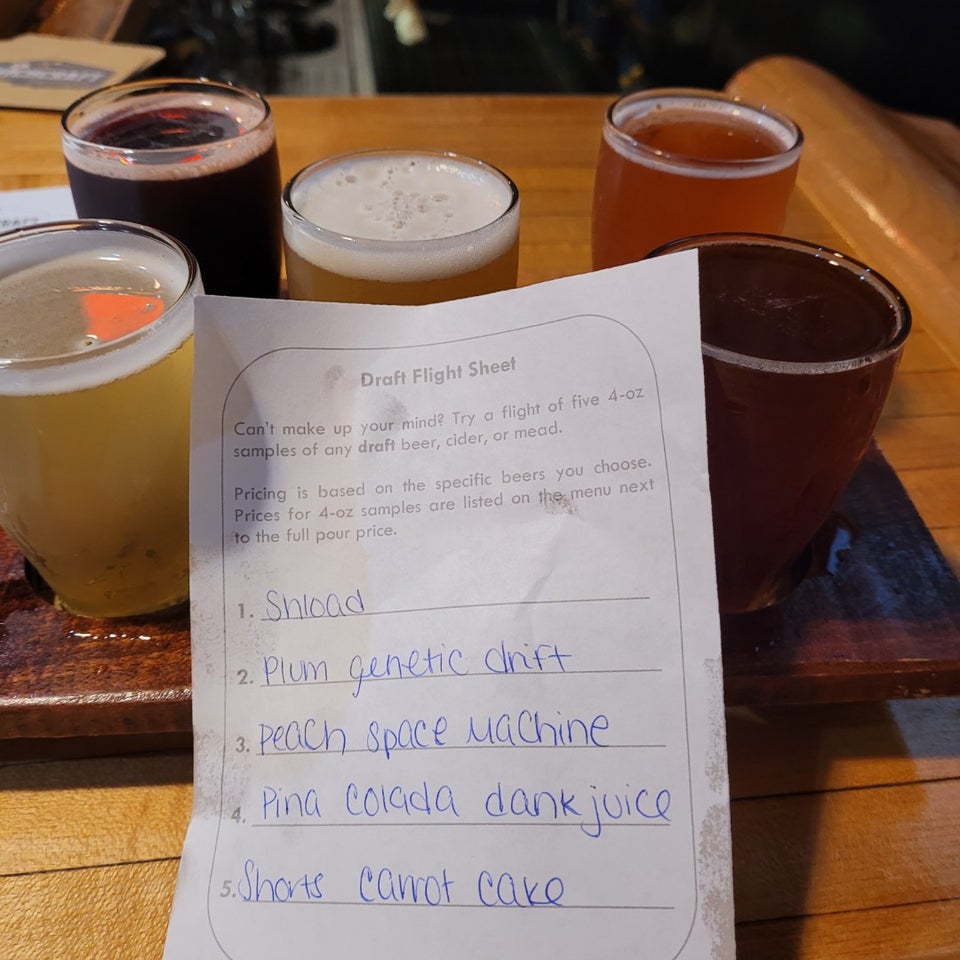 Draft Flight Sheet
Can't make up your mind? Try a flight of five 4-oz
samples of any draft beer, cider, or mead.
Pricing is based on the specific beers you choose.
Prices for 4-oz samples are listed on the menu next
to the full pour price.
1. Snload
2. Plum genetic drift
3. Peach space Machine
4. Pina colada dank juice
5. Shorts carrot cake